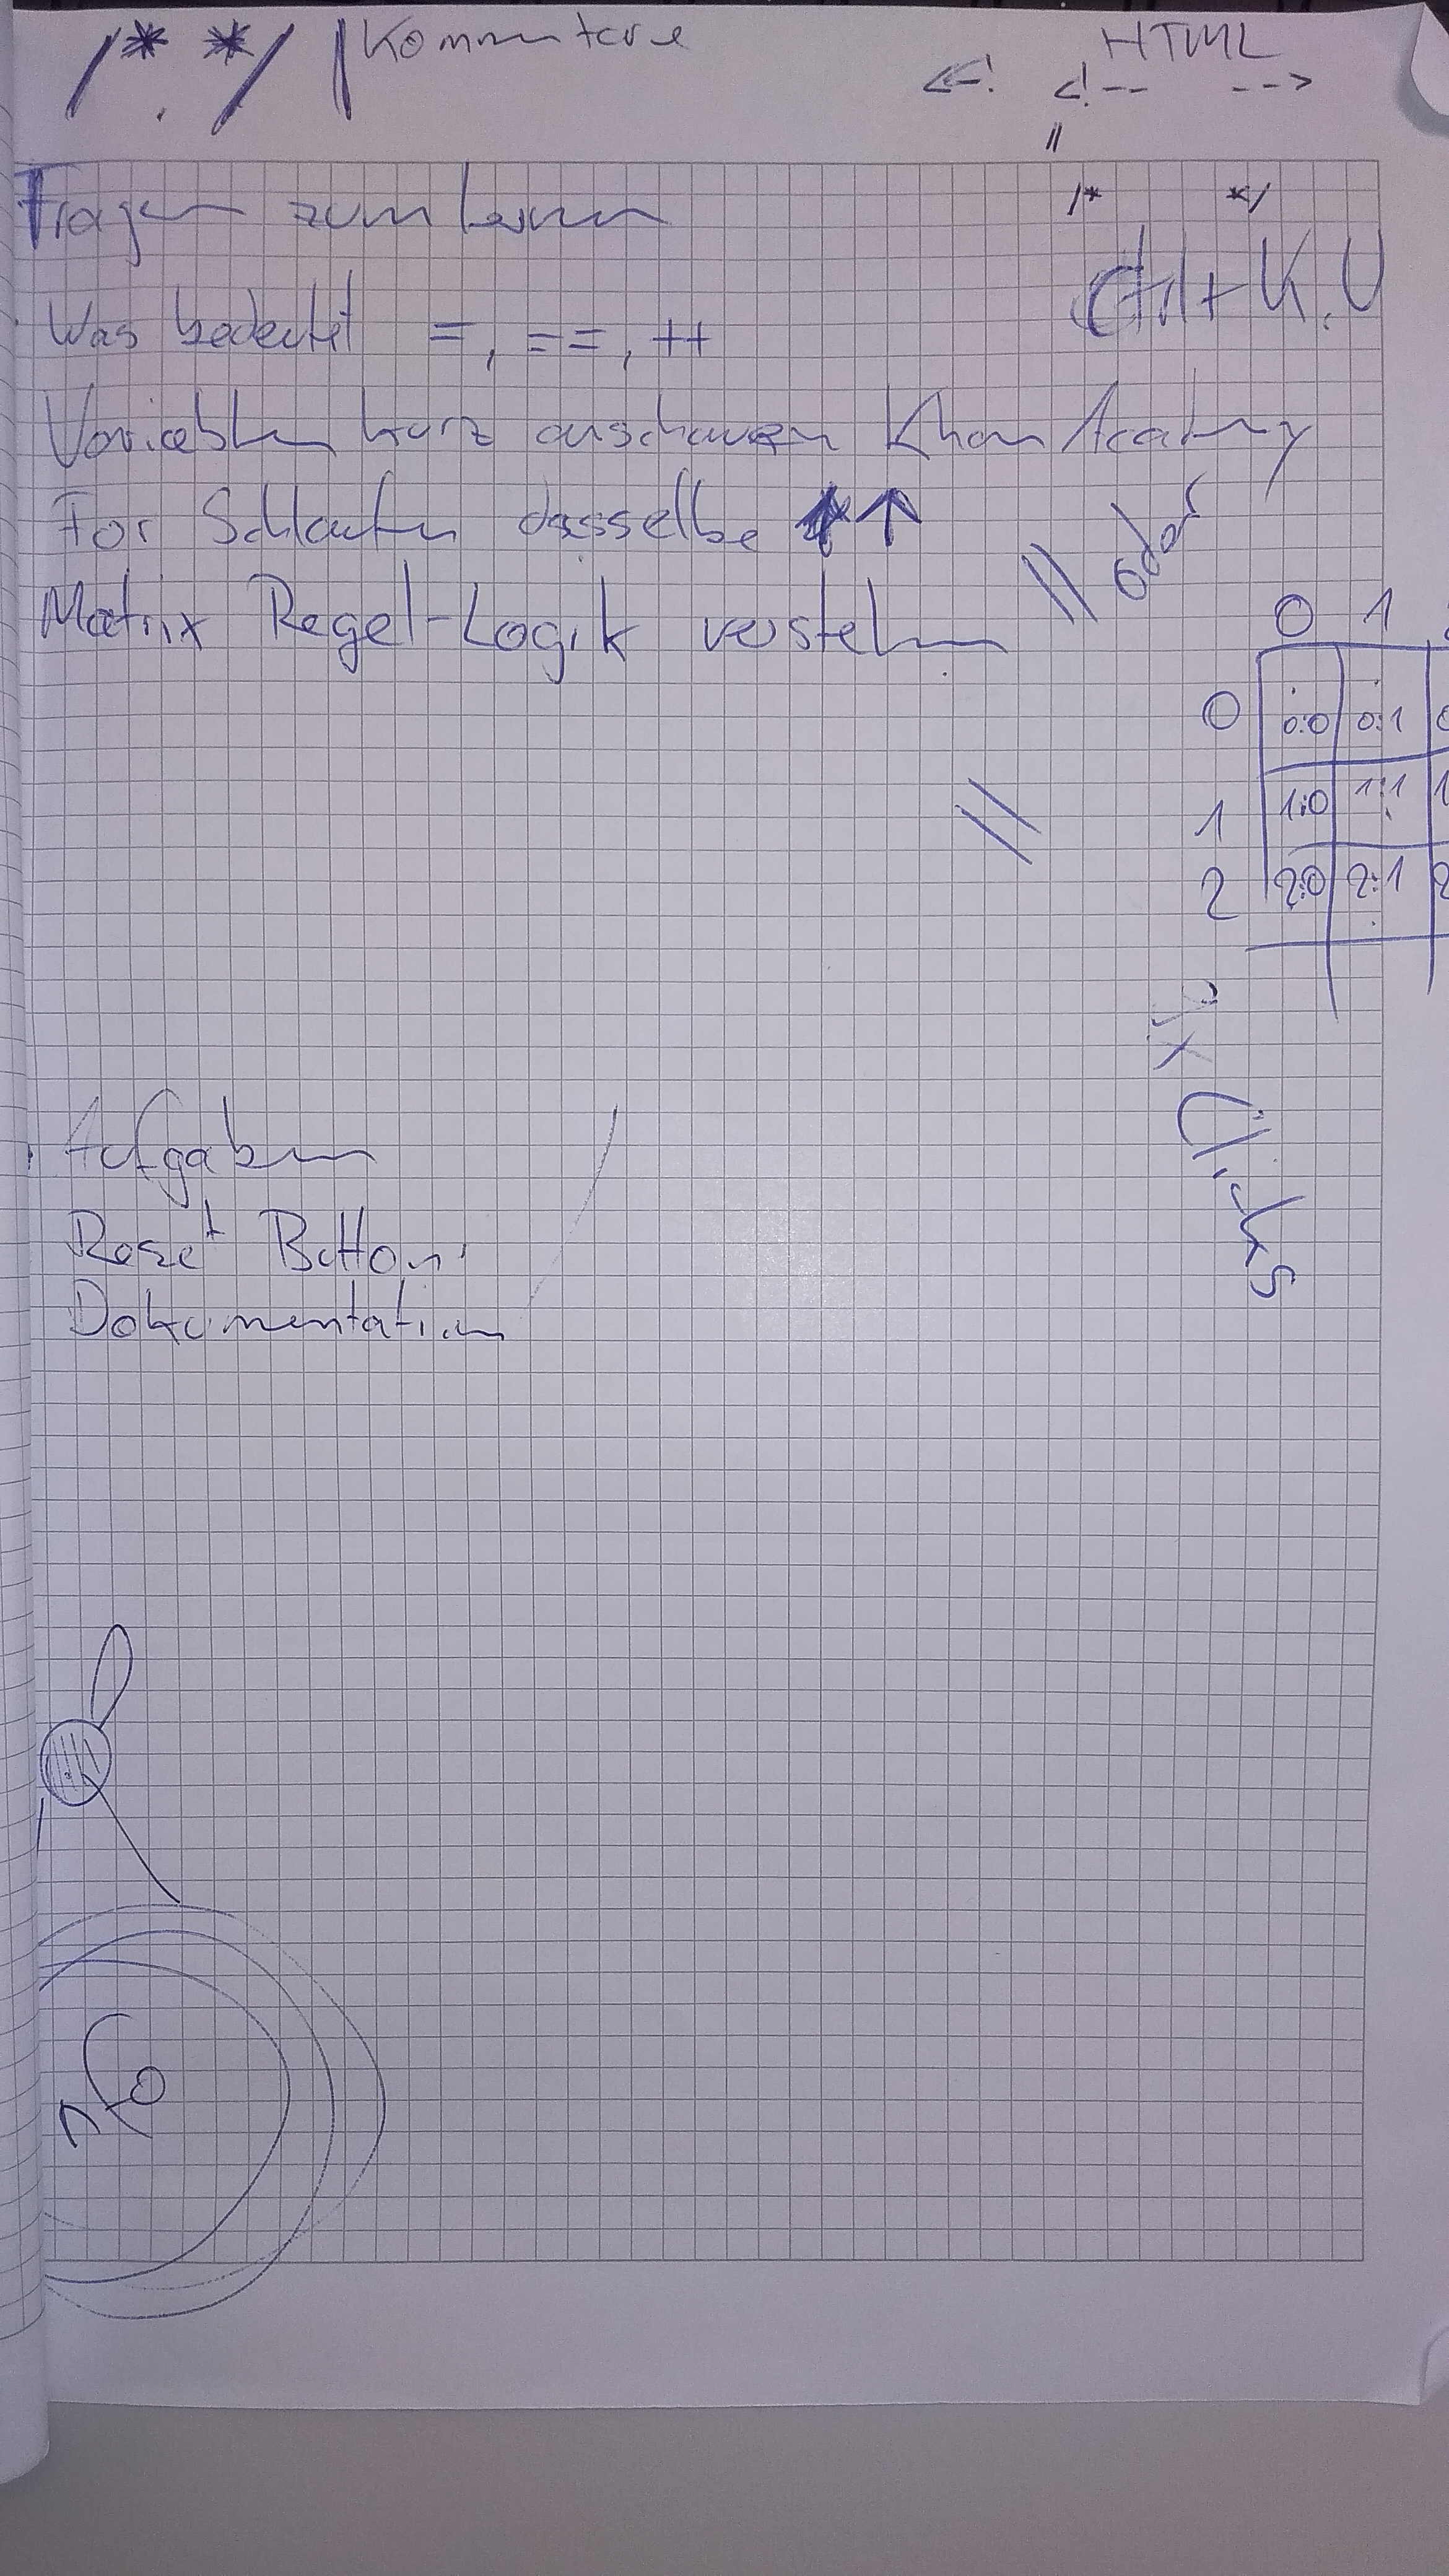 /* */ | Kommentare
HTML
<-! <!-- -->
//
/* */
Fragen zum lernen
Ctrl + K, U
Was bedeutet =, ==, ++
Variablen kurz anschauen Khan Academy
For Schlaufen dasselbe ↑
// oder
Matrix Regel-Logik verstehen
0 1
0 0:0 0:1
//
1 1:0 1:1
2 2:0 2:1
Clicks
Aufgaben
Reset Button
Dokumentation